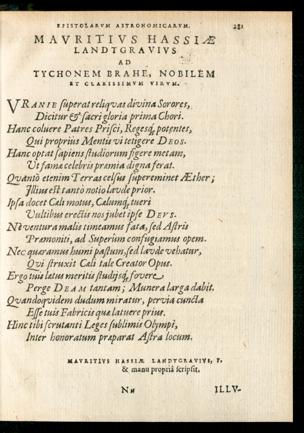 EPISTOLARVM ASTRONOMICARVM. 281
MAVRITIVS HASSIÆ
LANDTGRAVIVS
AD
TYCHONEM BRAHE, NOBILEM
ET CLARISSIMVM VIRVM.
VRANIE superat reliqvas divina Sorores,
Dicitur & sacri gloria prima Chori.
Hanc coluere Patres Prisci, Regesq, potentes,
Qui proprius Mentis vi tetigere DEOS.
Hanc optat sapiens studiorum figere metam,
Ut famæ celebris præmia digna ferat.
Quantò etenim Terras celsus supereminet Æther;
Illius est tantò notio laude prior.
Ipsa docet Cæli motus, Cælumq, tueri
Vultibus erectis nos jubet ipse DEVS.
Ni ventura malis timeamus fata, sed Astris
Præmoniti, ad Superûm confugiamus opem.
Nec quæramus humi pastum, sed laude vehatur,
Qui struxit Cæli tale Creator Opus.
Ergo tuis latus meritis studijsq, fovere
Perge DEAM tantam; Munera larga dabit.
Quandoqvidem dudum miratur, pervia cuncta
Esse tuis Fabricis quæ latuere prius.
Hinc tibi scrutanti Leges sublimis Olympi,
Inter honoratum præparat Astra locum.
MAVRITIVS HASSIÆ LANDTGRAVIVS, F.
& manu propriâ scripsit.
Nn ILLV-